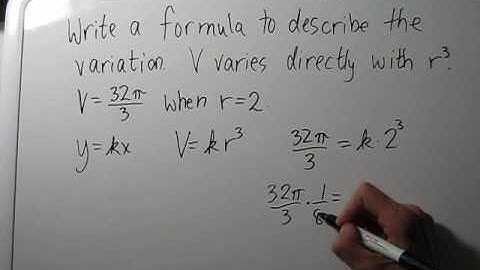 Write a formula to describe the
variation. V varies directly with r³.
V = 32π/3 when r = 2.
y = kx V = kr³ 32π/3 = k · 2³
32π/3 · 1/8 =